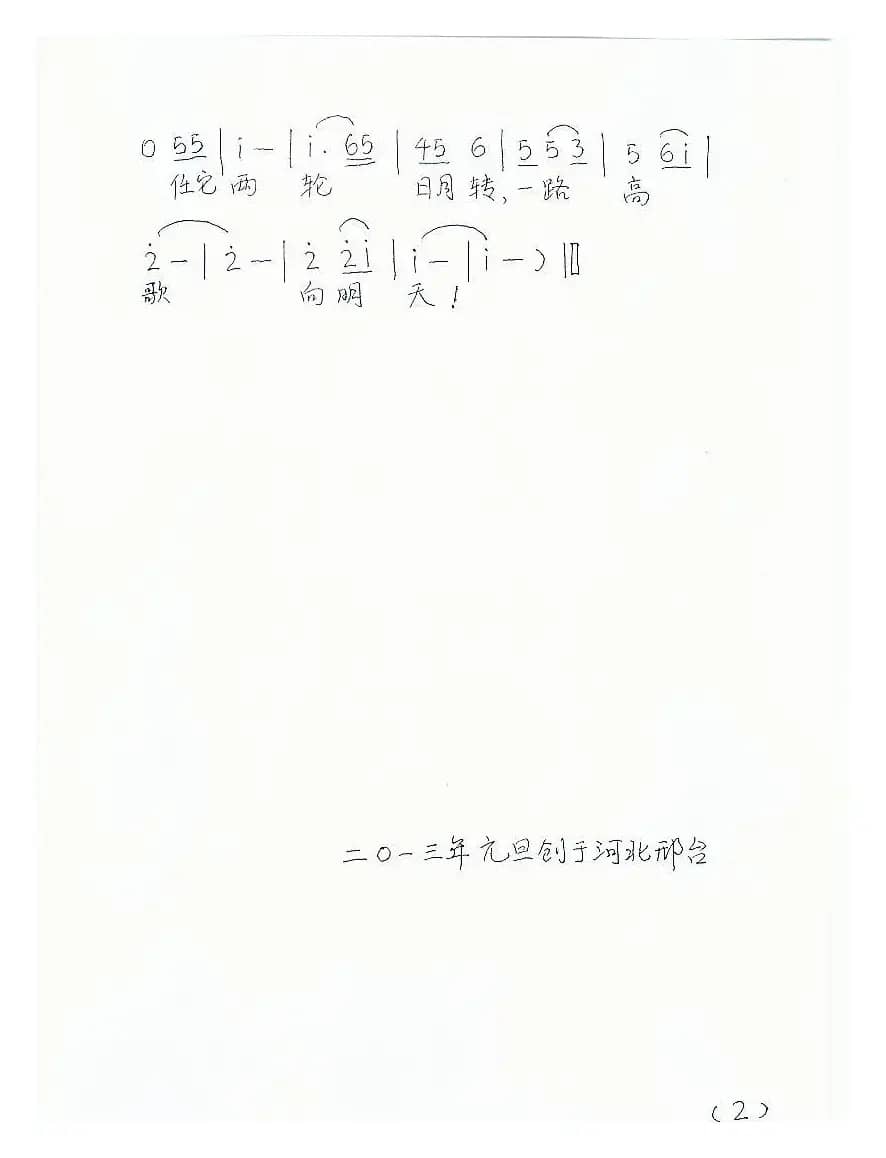 0 55 | i - | i. 65 | 45 6 | 5 5 3 | 5 6i |
任它两 轮 日月转,一路 高
2̇ - | 2̇ - | 2̇ 2̇i | i - | i - ) ‖
歌 向明 天!
二〇一三年元旦创于河北邢台
(2)